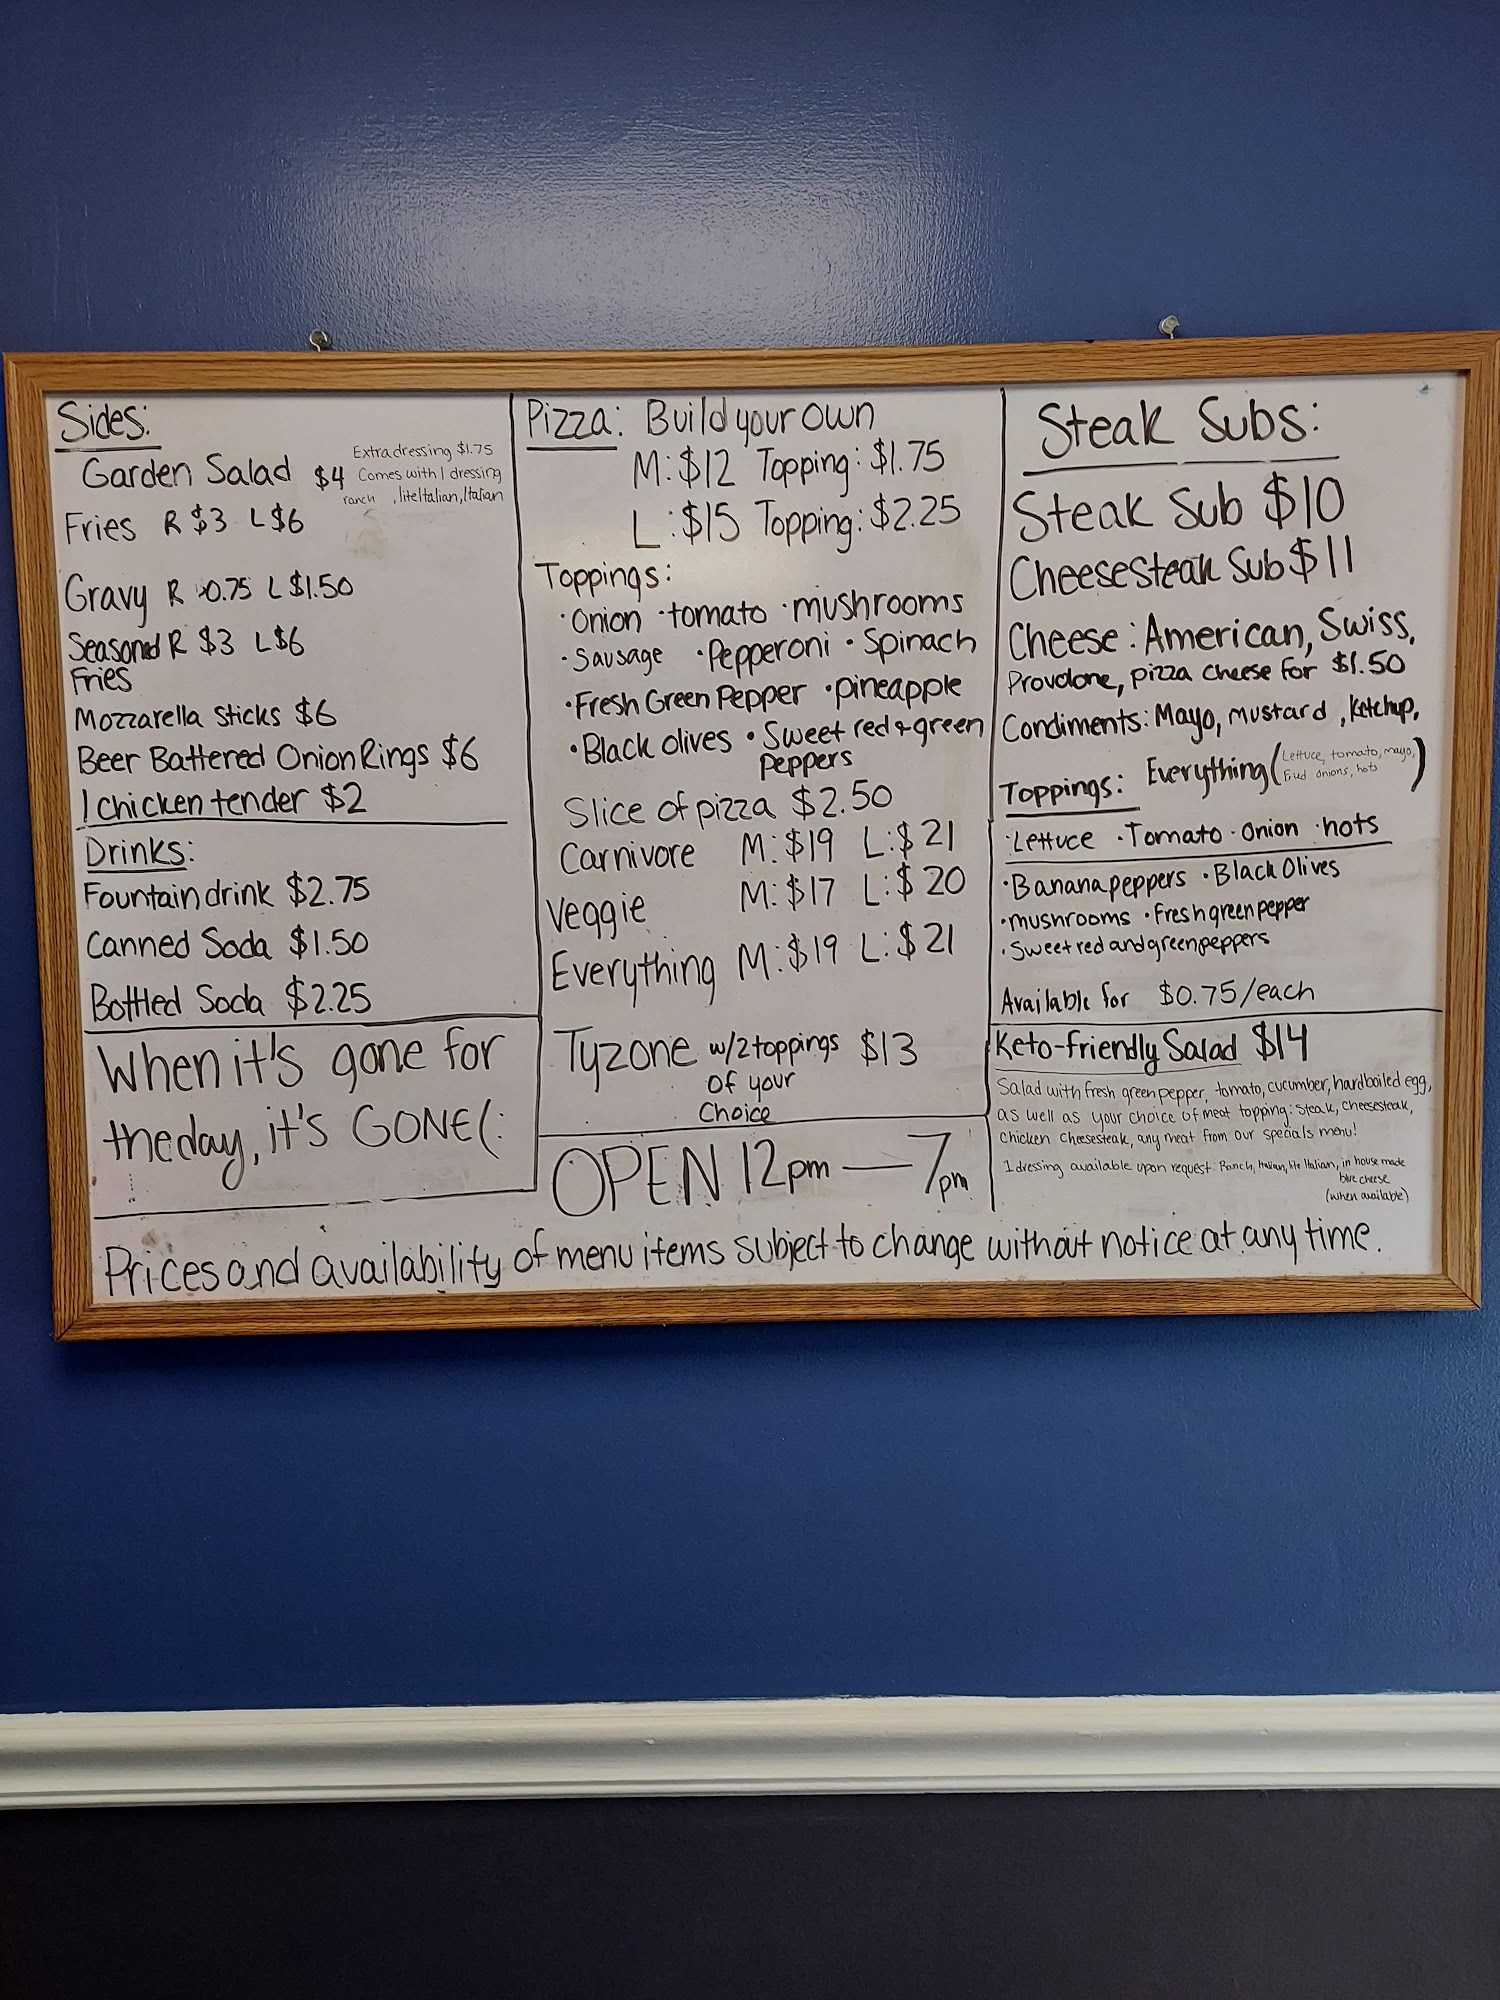 Sides:
Garden Salad $4
Extra dressing $1.75
Comes with 1 dressing
ranch , lite Italian, Italian
Fries R $3 L $6
Gravy R 0.75 L $1.50
Seasoned R $3 L $6
Fries
Mozzarella Sticks $6
Beer Battered Onion Rings $6
1 chicken tender $2
Drinks:
Fountain drink $2.75
Canned Soda $1.50
Bottled Soda $2.25
When it's gone for
the day, it's GONE(:
Pizza: Build your own
M: $12 Topping: $1.75
L: $15 Topping: $2.25
Toppings:
· Onion · tomato · mushrooms
· Sausage · Pepperoni · Spinach
· Fresh Green Pepper · pineapple
· Black olives · Sweet red + green
peppers
Slice of pizza $2.50
Carnivore M: $19 L: $21
Veggie M: $17 L: $20
Everything M: $19 L: $21
Tyzone w/2 toppings $13
of your
Choice
OPEN 12pm — 7pm
Steak Subs:
Steak Sub $10
Cheesesteak Sub $11
Cheese: American, Swiss,
Provolone, pizza cheese for $1.50
Condiments: Mayo, mustard, ketchup,
Toppings: Everything (Lettuce, tomato, mayo,
fried onions, hots)
· Lettuce · Tomato · Onion · hots
· Banana peppers · Black Olives
· mushrooms · Fresh green pepper
· Sweet red and green peppers
Available for $0.75/each
Keto-friendly Salad $14
Salad with fresh green pepper, tomato, cucumber, hard boiled egg,
as well as your choice of meat topping: Steak, cheesesteak,
chicken cheesesteak, any meat from our specials menu!
1 dressing available upon request Ranch, Italian, lite Italian, in house made
blue cheese
(when available)
Prices and availability of menu items subject to change without notice at any time.